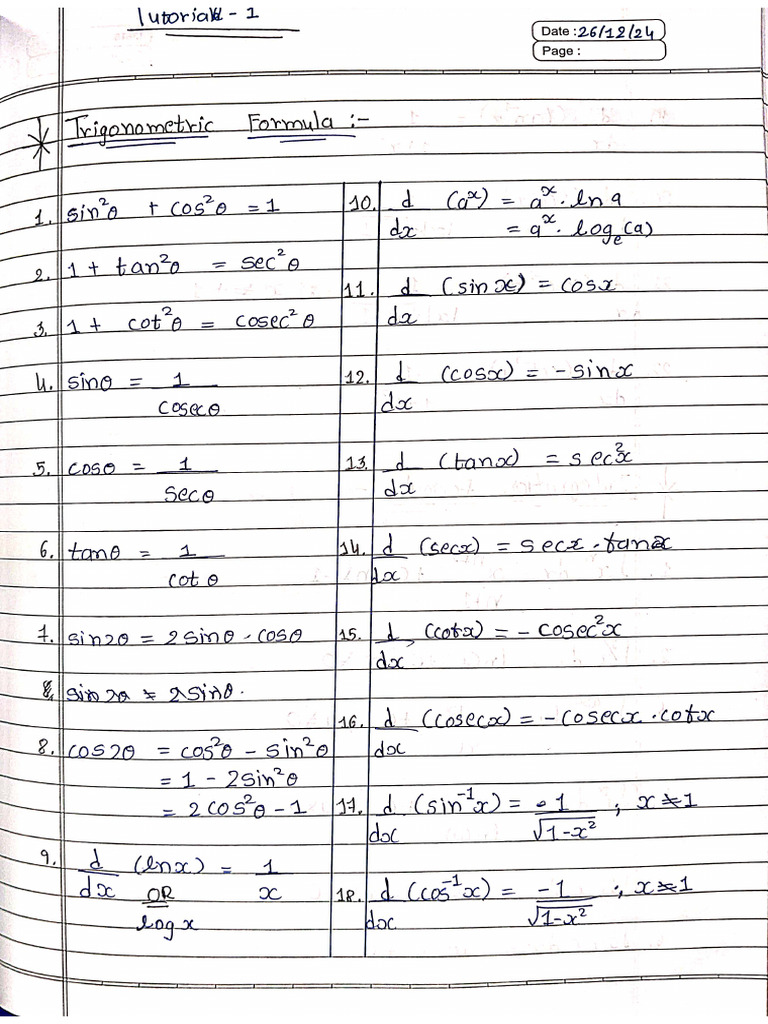 Tutorial - 1
Date : 26/12/24
Page :
Trigonometric Formula :-
1. sin²θ + cos²θ = 1
2. 1 + tan²θ = sec²θ
3. 1 + cot²θ = cosec²θ
4. sinθ = 1/cosecθ
5. cosθ = 1/secθ
6. tanθ = 1/cotθ
7. sin2θ = 2sinθ · cosθ
8. sin2θ = 2sinθ.
8. cos2θ = cos²θ - sin²θ
= 1 - 2sin²θ
= 2cos²θ - 1
9. d/dx (lnx) = 1/x
OR
logx
10. d/dx (aˣ) = aˣ · ln a
= aˣ · logₑ(a)
11. d/dx (sinx) = cosx
12. d/dx (cosx) = -sinx
13. d/dx (tanx) = sec²x
14. d/dx (secx) = secx · tanx
15. d/dx (cotx) = -cosec²x
16. d/dx (cosecx) = -cosecx · cotx
17. d/dx (sin⁻¹x) = 1/√1-x² ; x ≠ 1
18. d/dx (cos⁻¹x) = -1/√1-x² ; x ≠ 1